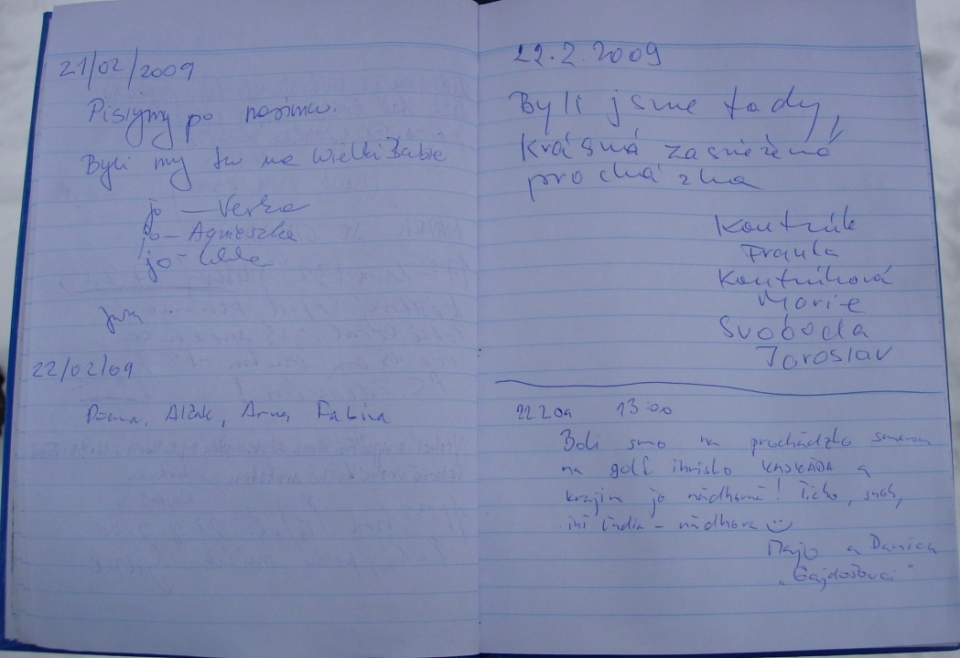 21/02/2009
Pisiymy po nasimu.
Byli my tu na Wielki Babie
jo — Verka
jo — Agnieszka
jo —
22/02/09
Alžak, Fabina
22.2.2009
Byli jsme tady,
Krásná zasněžená
procházka
Kontrík
Franta
Kontríková
Marie
Svoboda
Jaroslav
22 2 09 13:00
Boli smo na prochádzko smerom
na golf ihrisko KASKÁDA a
krajin jo nádherná! Ticho, sneh,
iní ľudia - nádhera
Majo a Danica
„Gajdošovci"